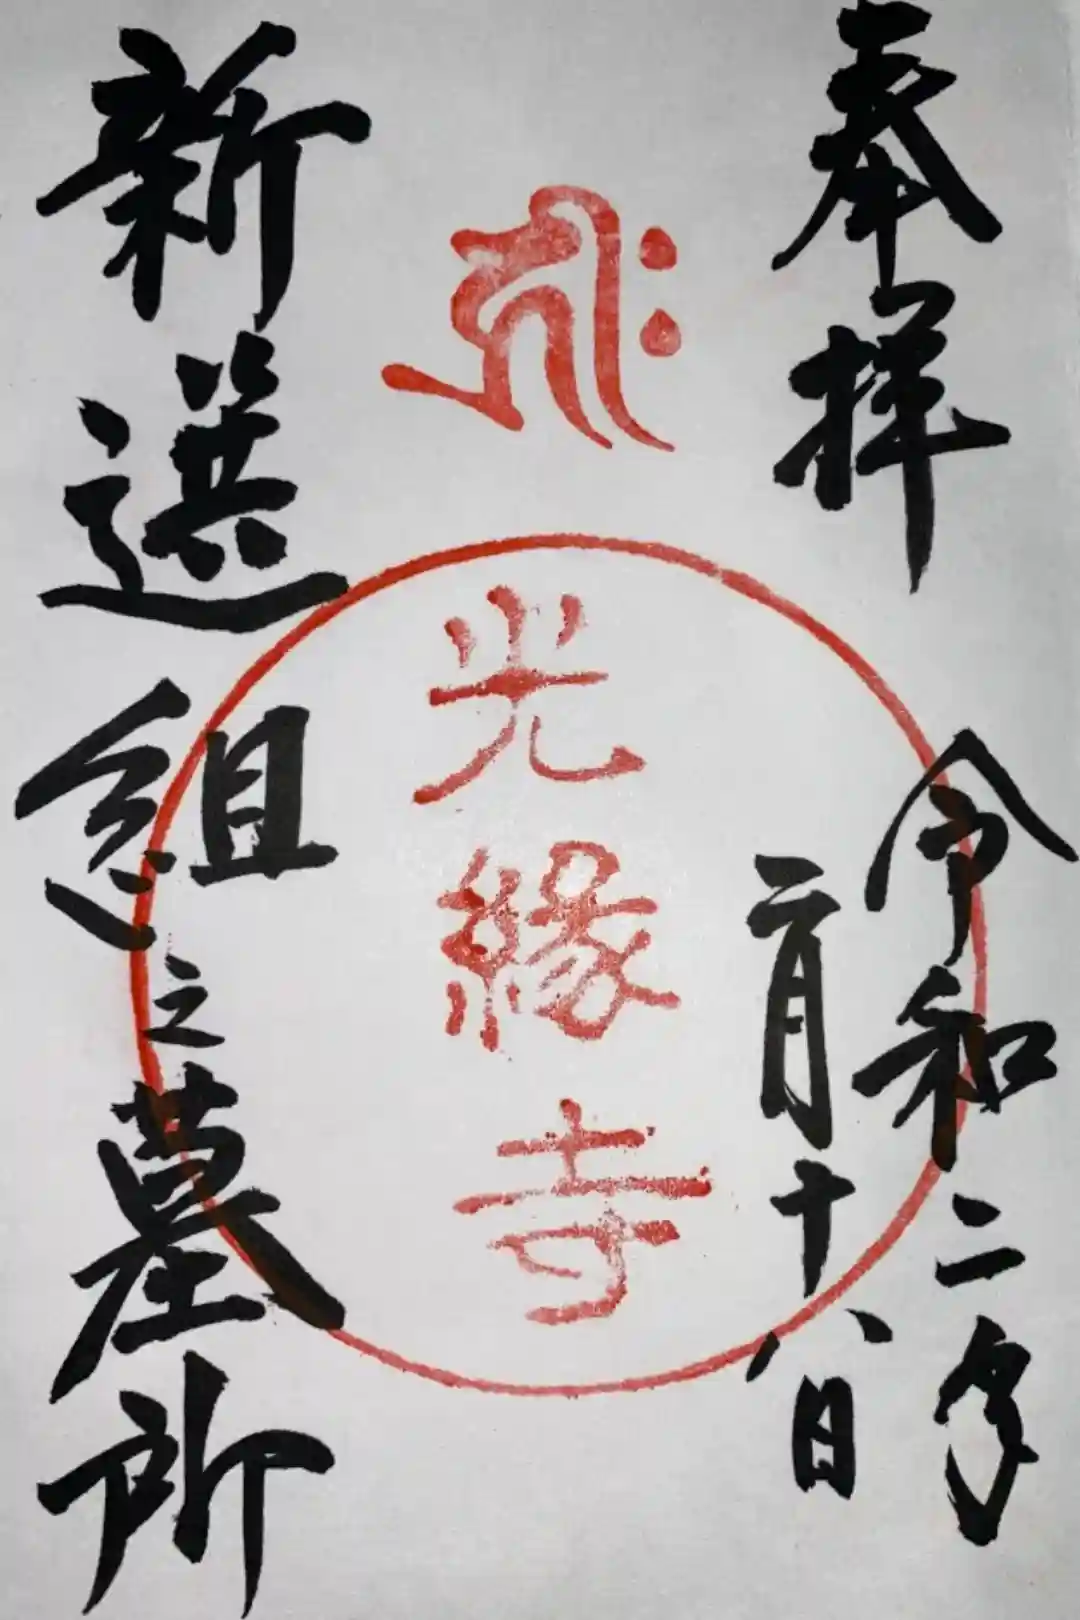 奉拝
令和二年
二月十八日
𑖮𑖿𑖨𑖱𑖾
光縁寺
新選組之墓所